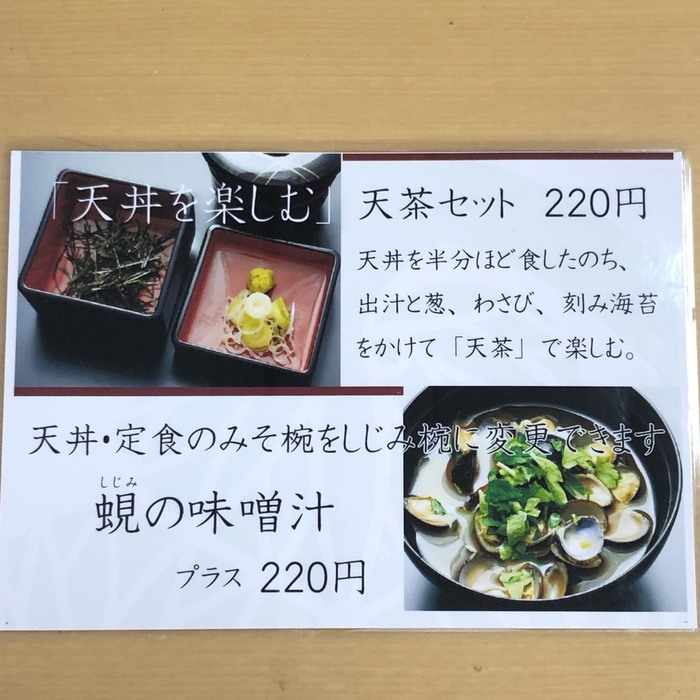 「天丼を楽しむ」
天茶セット 220円
天丼を半分ほど食したのち、
出汁と葱、わさび、刻み海苔
をかけて「天茶」で楽しむ。
天丼・定食のみそ椀をしじみ椀に変更できます
しじみ
蜆の味噌汁
プラス 220円